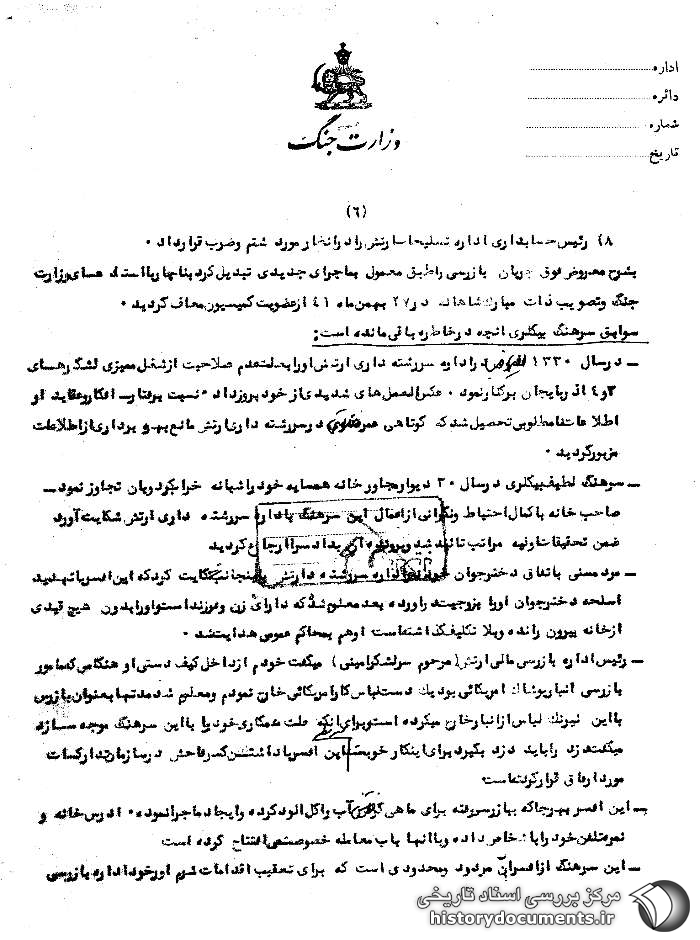 وزارت جنگ
اداره
دائره
شماره
تاریخ
(۶)
۸) رئیس حسابداری اداره تسلیحات ارتش را در انظار مورد شتم وضرب قرار داد .
بشرح معروض فوق جریان بازرسی را طبق معمول بماجرای جدیدی تبدیل کرد بناچار با استدعای وزارت
جنگ وتصویب ذات مبارک شاهانه در ۲۷ بهمن ماه ۴۱ از عضویت کمیسیون معاف گردید .
سوابق سرهنگ بیگلری آنچه در خاطره باقی مانده است:
ــ در سال ۱۳۳۰ در اداره سررشته داری ارتش اورا بعلت عدم صلاحیت از شغل ممیزی لشگرهای
۳و۴ آذربایجان برکنار نمود . عکس العمل های شدیدی از خود بروز داد . نسبت برفتار افکار وعقاید او
اطلاعات نامطلوبی تحصیل شد که کوتاهی عمر در سررشته داری ارتش مانع بهره برداری از اطلاعات
مزبور گردید .
ــ سرهنگ لطیف بیگلری در سال ۳۰ دیوار مجاور خانه همسایه خود را شبانه خراب کرد وبآن تجاوز نمود ــ
صاحب خانه با کمال احتیاط ونگرانی از اعمال این سرهنگ باداره سررشته داری ارتش شکایت آورد
ضمن تحقیقات اولیه مراتب تائید شد وپرونده به دادسرا ارجاع گردید
ــ مرد مسنی باتفاق دختر جوان خود باداره سررشته داری ارتش باینجانب شکایت کرد که این افسر با تهدید
اسلحه دختر جوان اورا بزوجیت درآورده بعد معلوم شد که دارای زن وفرزند است واورا بدون هیچ قیدی
از خانه بیرون رانده وبلا تکلیف گذاشته است اوهم بمحاکم عمومی هدایت شد .
ــ رئیس اداره بازرسی مالی ارتش (مرحوم سرلشگر امینی) میگفت خودم از داخل کیف دستی او هنگامی که مامور
بازرسی انبار پوشاک امریکائی بود یک دست لباس کار امریکائی خارج نمودم ومعلوم شد مدتها بعنوان بازرس
با این نیرنگ لباس از انبار خارج میکرده است وبرای اینکه علت همکاری خود را با این سرهنگ موجه سازد
میگفت دزد را باید دزد بگیرد برای اینکار خوبست این افسر با داشتن کسر فاحش در سازمان تدارکات
مورد ارفاق قرار گرفته است
ــ این افسر بهر جا که ببازرسی رفته برای ماهی گرفتن آب را گل آلود کرده وایجاد ماجرا نموده . آدرس خانه و
نمره تلفن خود را باشخاص داده وبا آنها باب معامله خصوصی افتتاح کرده است
ــ این سرهنگ از افسران مردود ومحدودی است که برای تعقیب اقدامات شرم آور خود اداره بازرسی
مرکز بررسی اسناد تاریخی
historydocuments.ir